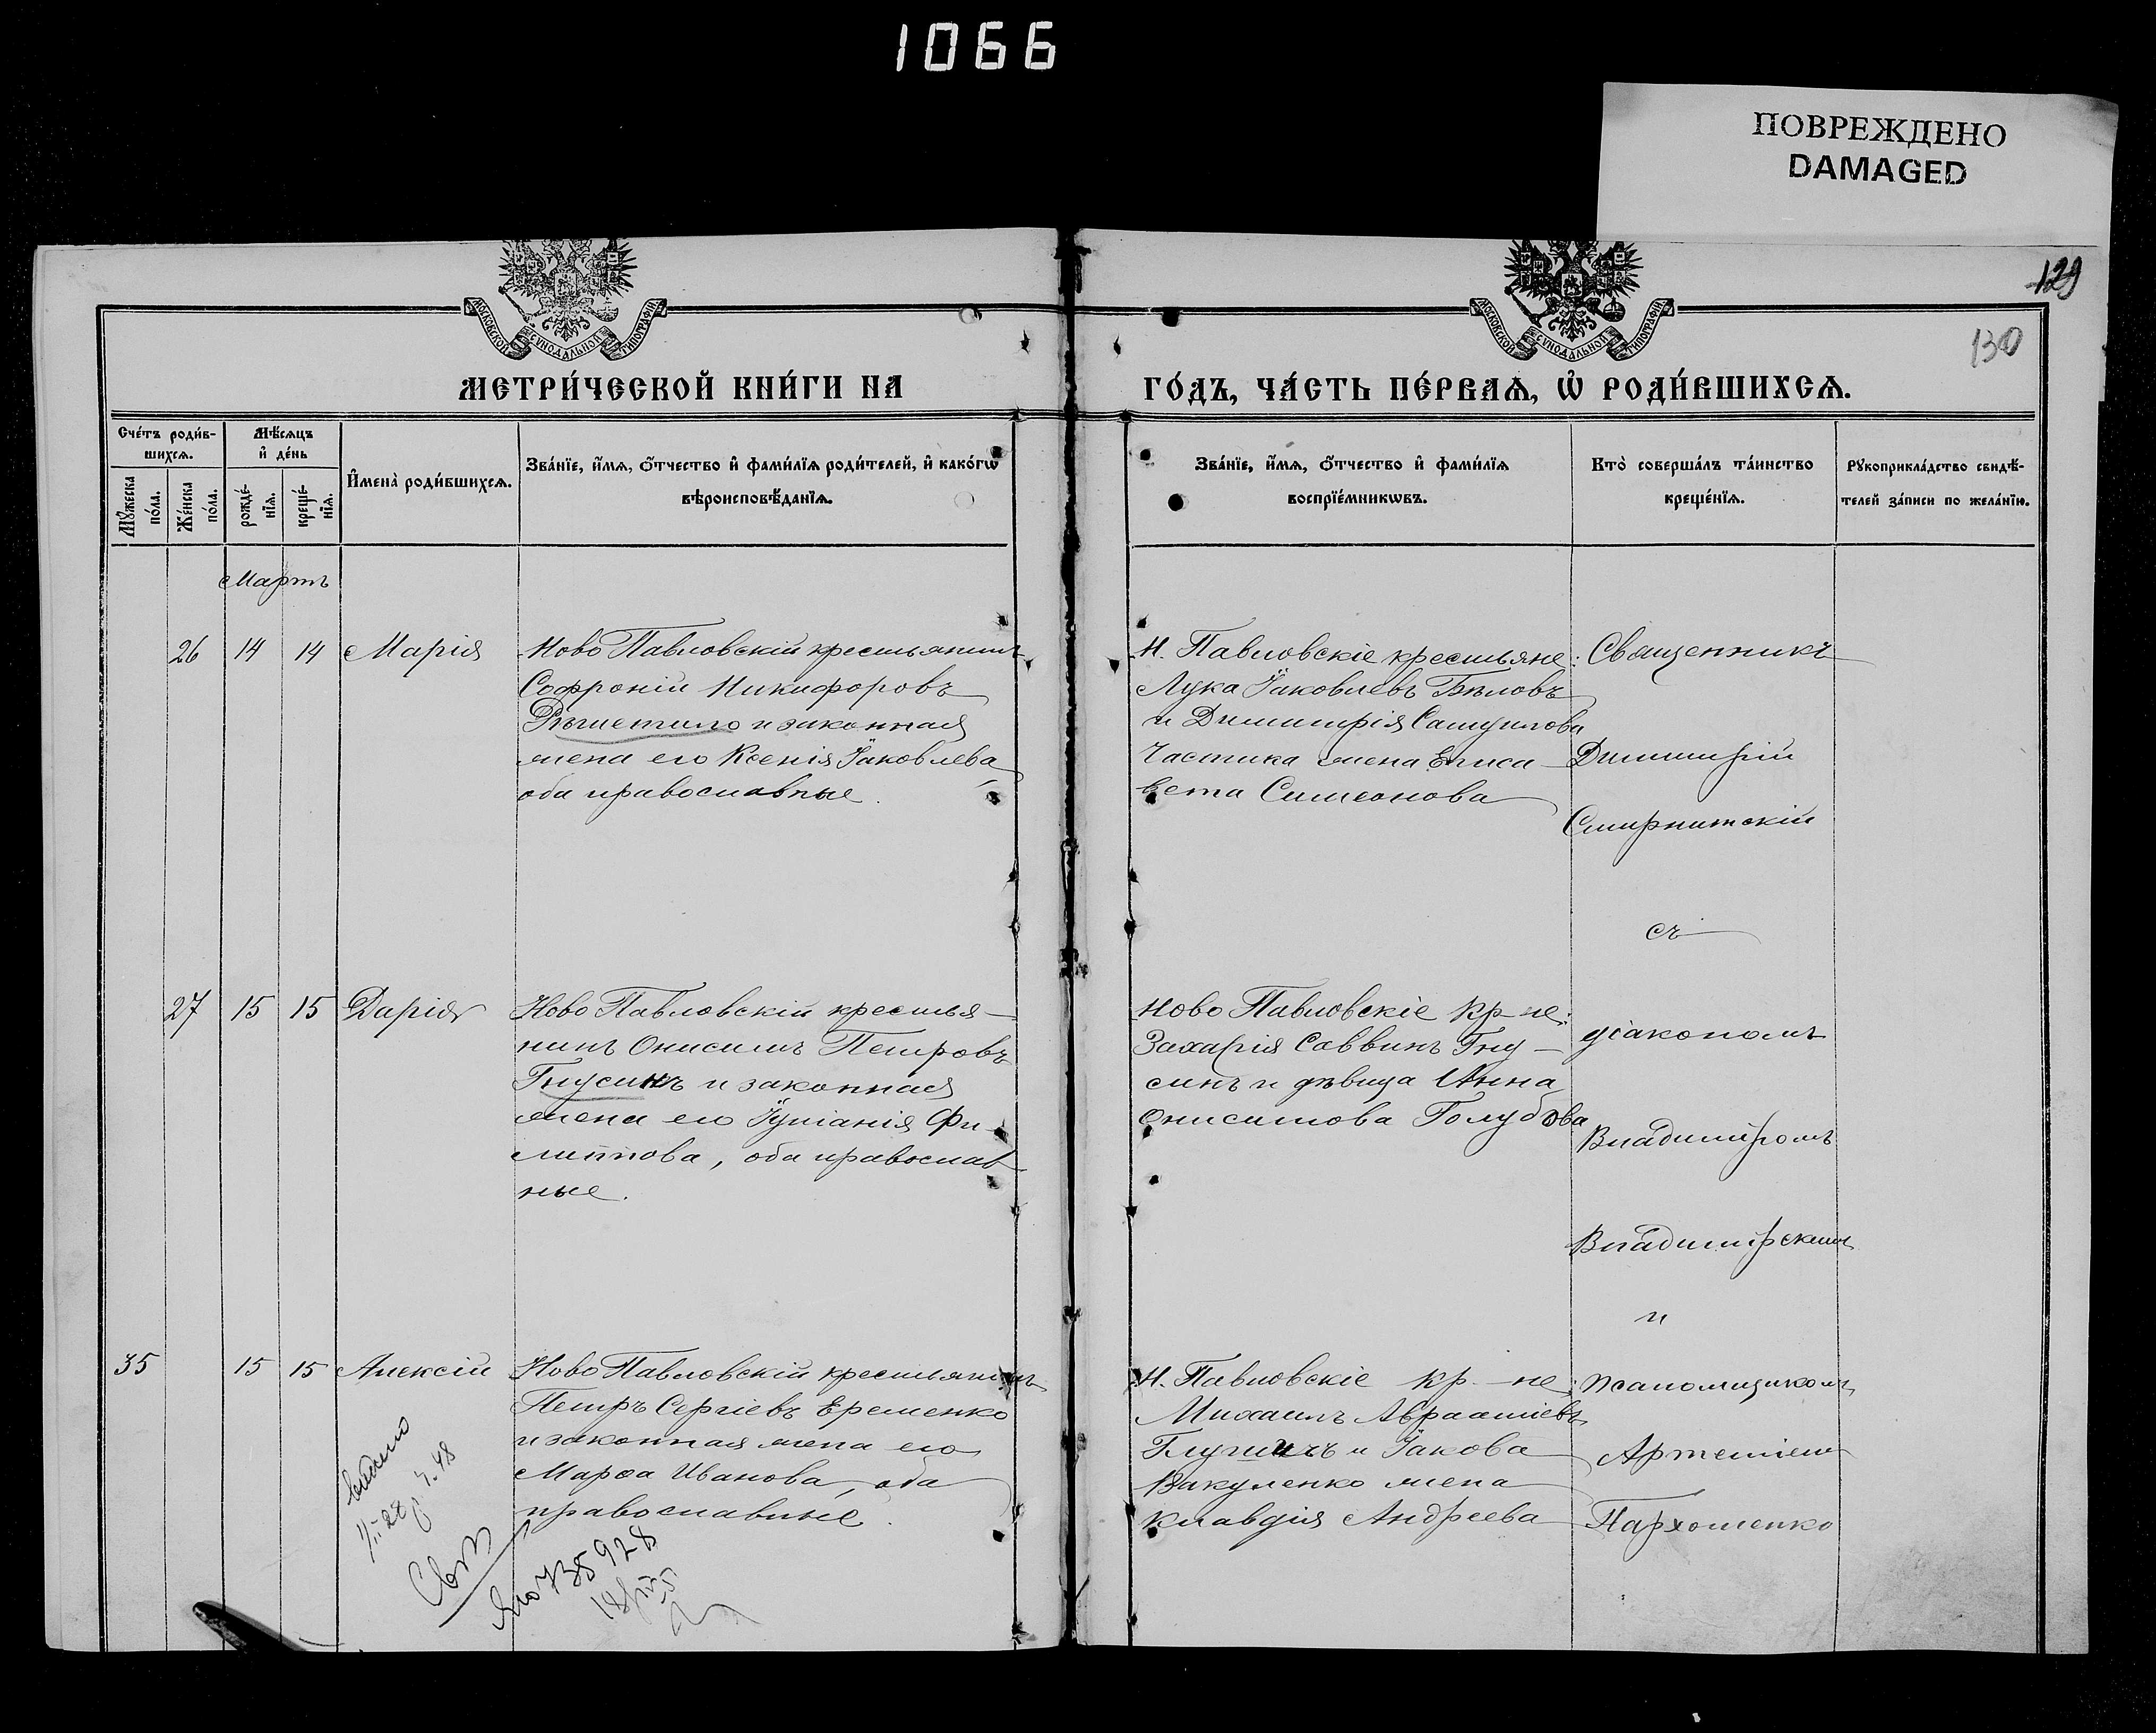 1066
ПОВРЕЖДЕНО
DAMAGED
129
130
МОСКОВСКОЙ СѴНОДАЛЬНОЙ ТИПОГРАФІИ
МОСКОВСКОЙ СѴНОДАЛЬНОЙ ТИПОГРАФІИ
МЕТРИ́ЧЕСКОЙ КНИ́ГИ НА
ГО́ДЪ, ЧА́СТЬ ПЕ́РВАѦ, Ѡ҆ РОДИ́ВШИХСѦ.
Сче́тъ роди́в-
шихсѧ.
Мꙋ́жеска по́ла.
Же́нска по́ла.
Мѣ́сѧцъ
и҆ де́нь
рожде́-
нїѧ.
креще́-
нїѧ.
И҆мена̀ роди́вшихсѧ.
Зва́нїе, и҆́мѧ, ѻ҆́тчество и҆ фами́лїѧ роди́телей, и҆ како́гѡ
вѣроисповѣ́данїѧ.
Зва́нїе, и҆́мѧ, ѻ҆́тчество и҆ фами́лїѧ
воспрїе́мникѡвъ.
Кто̀ соверша́лъ та́инство
креще́нїѧ.
Рꙋкоприкла́дство свидѣ́-
телей за́писи по жела́нїю.
Мартъ
26 14 14 Марія
Ново Павловскій крестьянинъ
Софроній Никифоровъ
и законная
жена его Ксенія Іаковлева
оба православные.
Н. Павловскіе крестьяне:
Лука Іаковлевъ Бѣловъ
и Димитрія Самуилова
Частика жена Елиса
вета Симеонова
Священникъ
Димитрій
Смирнитскій
съ
27 15 15 Дарія
Ново Павловскій крестья-
нинъ Онисимъ Петровъ
Гнусинъ и законная
жена его Іуліанія Фи-
липпова, оба православ-
ные.
Ново Павловскіе кр-не:
Захарія Саввинъ Гну-
синъ и дѣвица Анна
Онисимова Голубова
діакономъ
Владиміромъ
Владимірскимъ
и
35 15 15 Алексій
Ново Павловскій крестьянинъ
Петръ Сергіевъ Еременко
и законная жена его
Марѳа Иванова, оба
православные.
Н. Павловскіе кр-не:
Михаилъ Авраамiевъ
и Іакова
Вакуленко жена
Клавдія Андреева
псаломщикомъ
Артеміемъ
Пархоменко